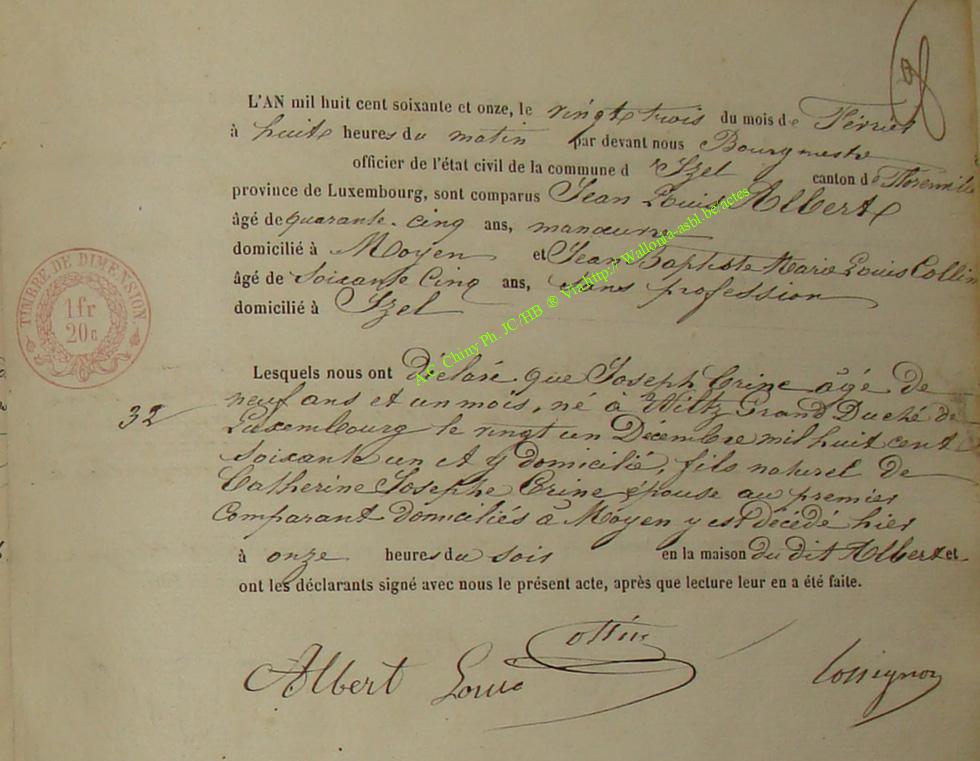 L'AN mil huit cent soixante et onze, le vingt trois du mois de Février
à huit heures du matin par devant nous Bourgmestre
officier de l'état civil de la commune d'Izel canton de Florenville
province de Luxembourg, sont comparus Jean Louis Albert
âgé de quarante-cinq ans, manœuvre
domicilié à Moyen et Jean Baptiste Marie Louis Collin
âgé de soixante cinq ans, sans profession
domicilié à Izel
TIMBRE DE DIMENSION
1 fr
20 c.
Av. Chiny Ph. JC/HB ® Via http://Wallonia-asbl.be/actes
Lesquels nous ont déclaré que Joseph Crine âgé de
32 neuf ans et un mois, né à Wiltz Grand Duché de
Luxembourg le vingt un Décembre mil huit cent
soixante un et y domicilié, fils naturel de
Catherine Josephe Crine épouse au premier
Comparant domiciliés à Moyen y est décédé hier
à onze heures du soir en la maison du dit Albert et
ont les déclarants signé avec nous le présent acte, après que lecture leur en a été faite.
Albert Louis Collin Rossignon